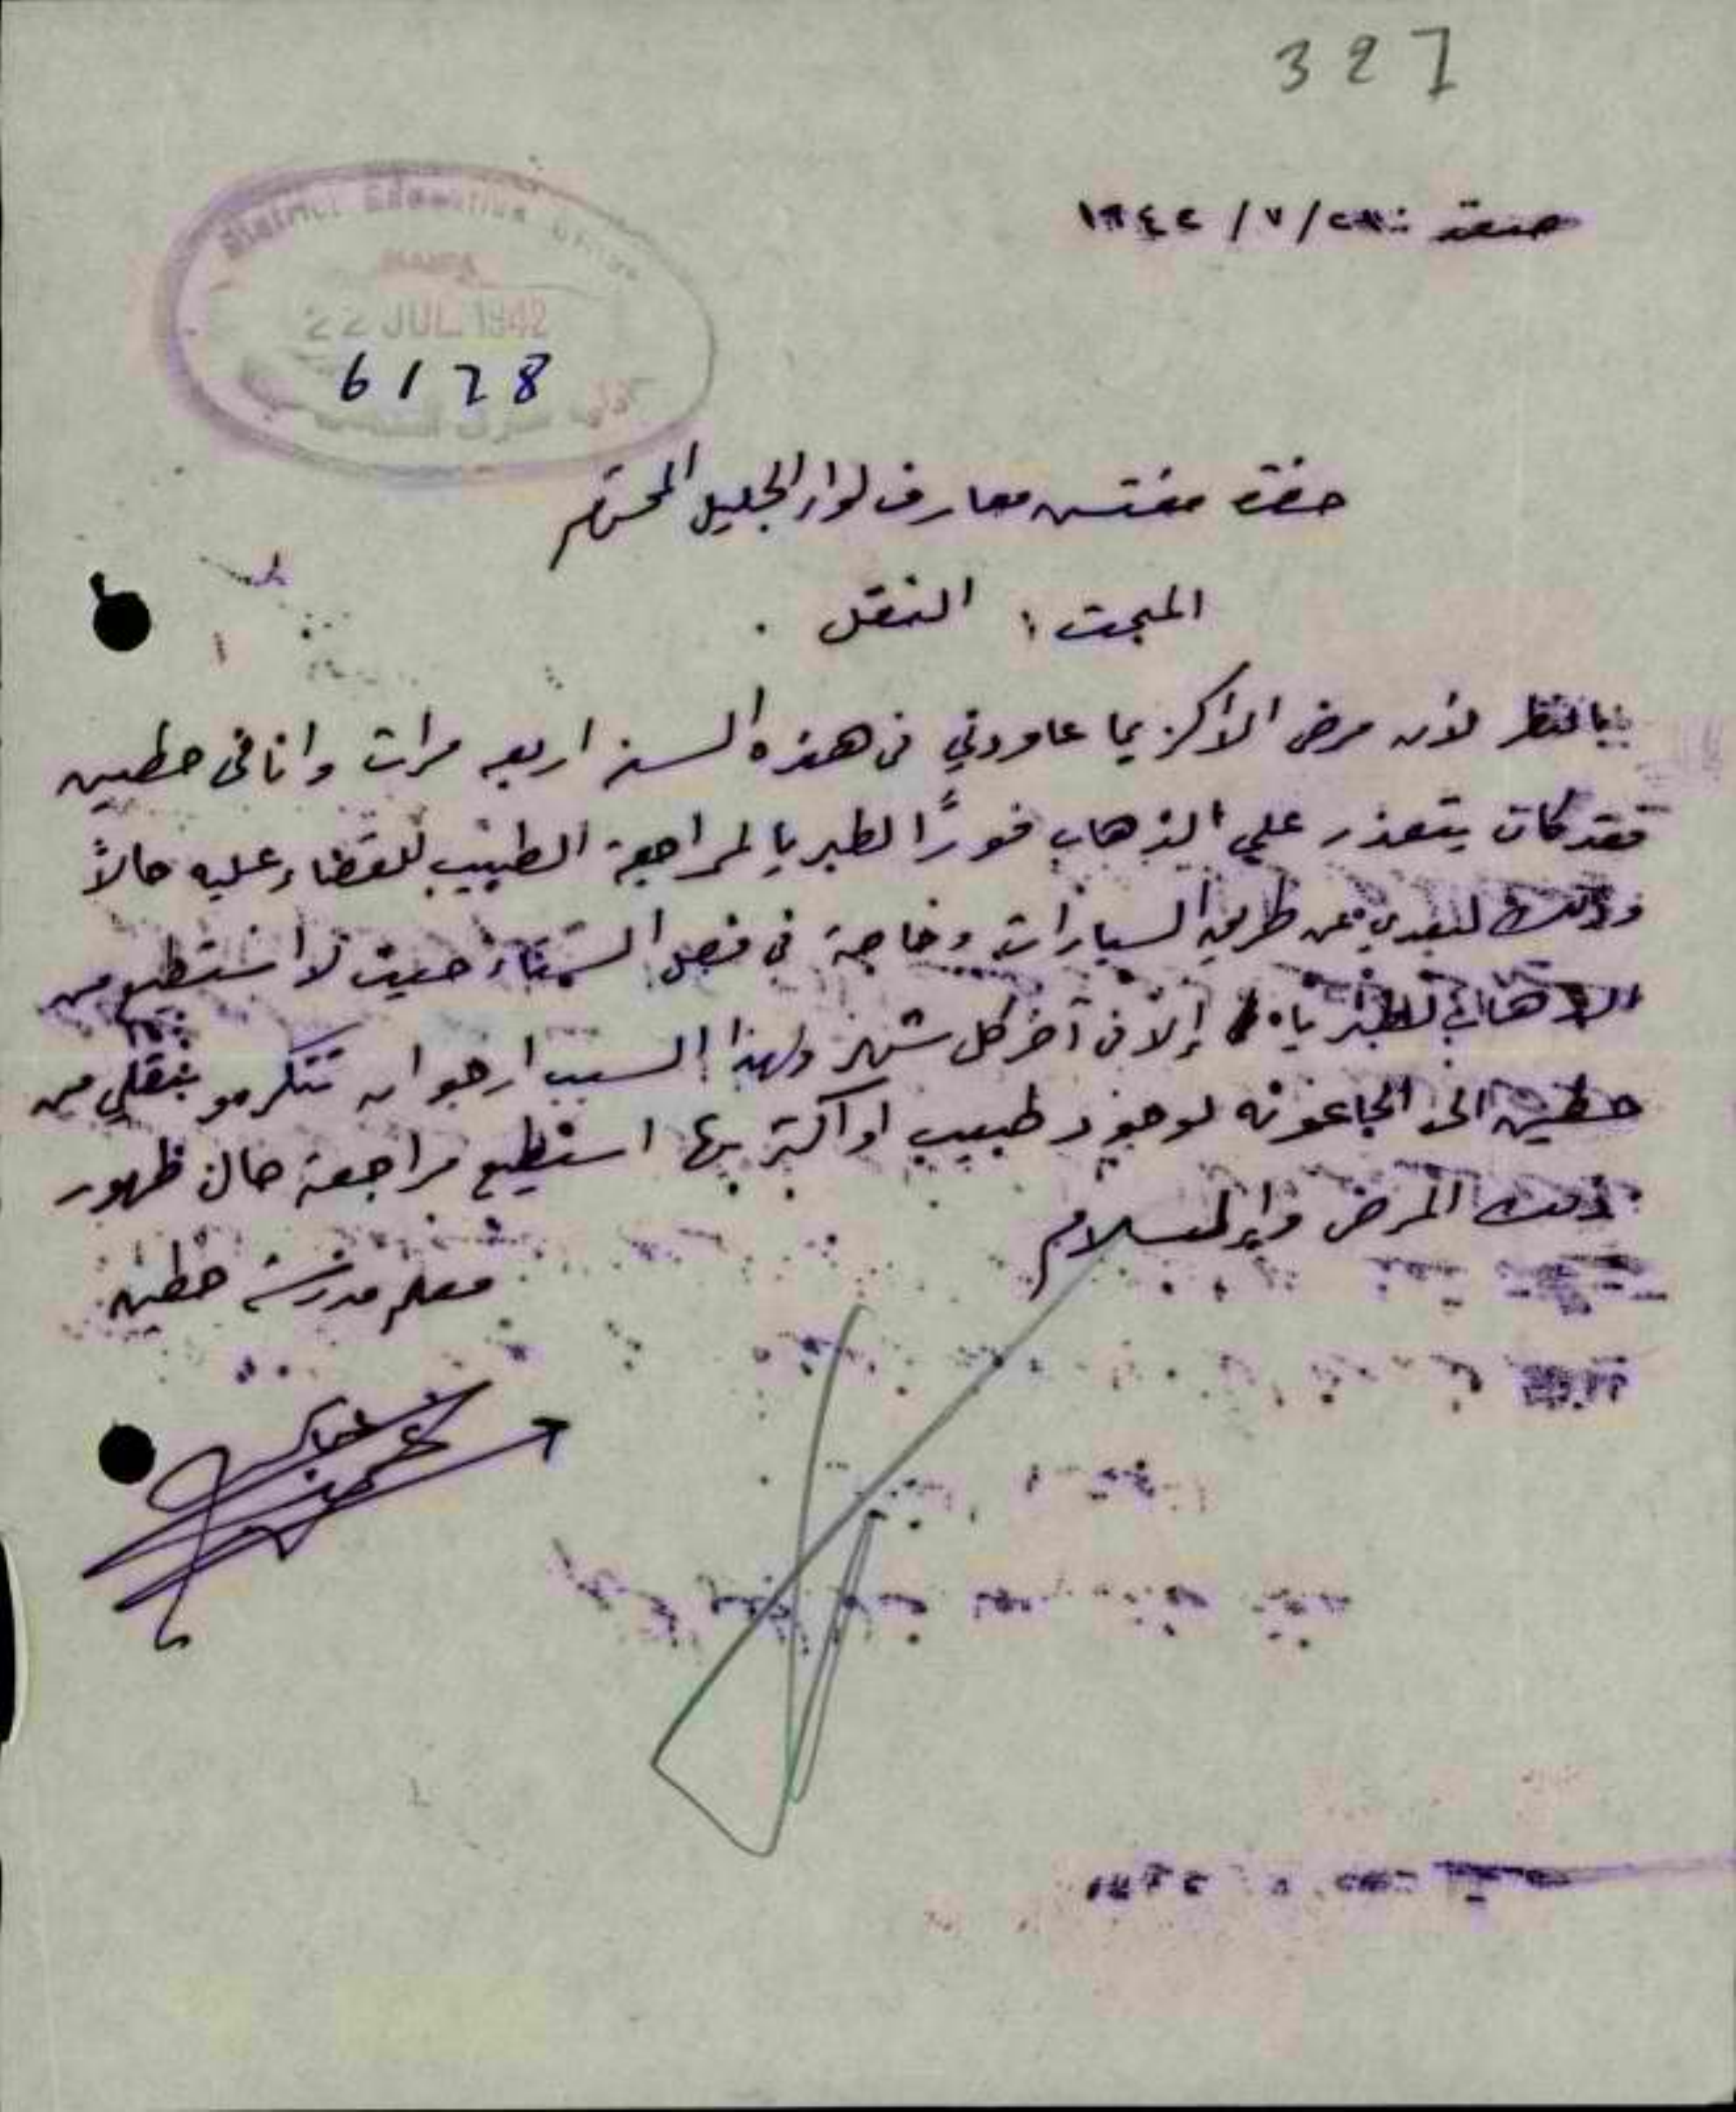 327
صفد ٢٠/٧/١٩٤٢
District Education Office
22 JUL 1942
6128
حضرة مفتش معارف لواء الجليل المحترم
المبحث : النقل .
بالنظر لأن مرض الاكزيما عاودني في هذه السنه اربعه مرات وانا في حطين
فقد كان يتعذر علي الذهاب فورًا لطبريا لمراجعة الطبيب للقضاء عليه حالاً
وذلك لبعدي عن طريق السيارات وخاصة في فصل الشتاء حيث لا استطيع من
الذهاب لطبريا إلا في آخر كل شهر ولهذا السبب ارجو ان تتكرمو بنقلي من
حطين الى الجاعونه لوجود طبيب او اكثر بها استطيع مراجعة حال ظهور
ذلك المرض والسلام
معلم مدرسة حطين